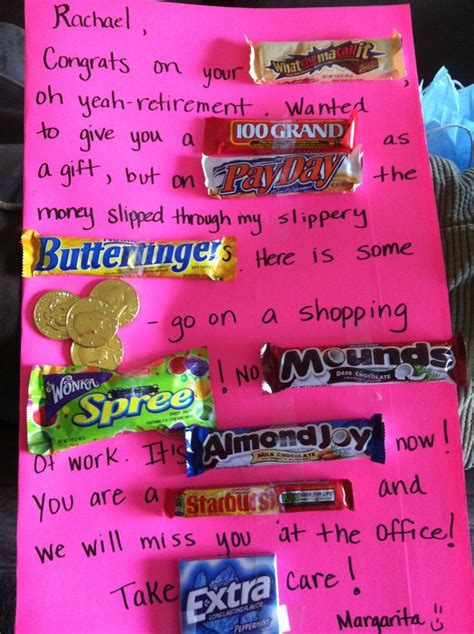 Rachael,
Congrats on your Whatchamacallit,
oh yeah-retirement. Wanted
to give you a 100 GRAND as
a gift, but on PayDay the
money slipped through my slippery
Butterfingers. Here is some
- go on a shopping
WONKA Spree ! No Mounds DARK CHOCOLATE
of work. It's Almond Joy MILK CHOCOLATE now!
You are a Starburst and
we will miss you at the office!
Take Extra LONG LASTING FLAVOR PEPPERMINT care!
Margarita